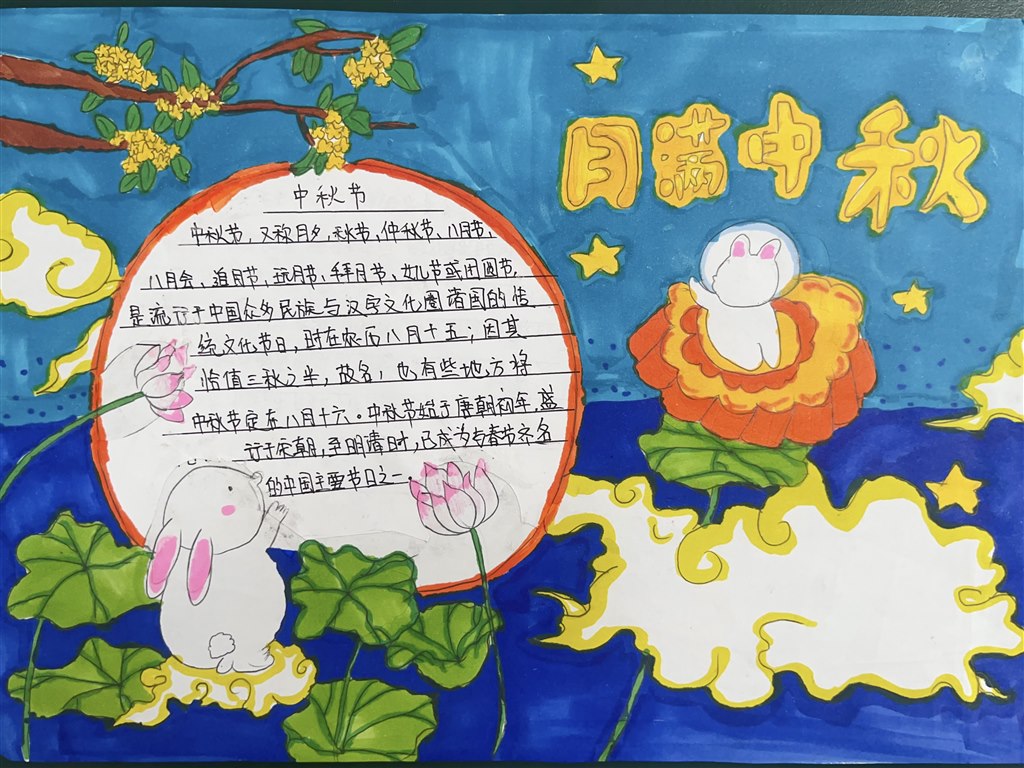 月满中秋
中秋节
中秋节,又称月夕,秋节、仲秋节、八月节、
八月会、追月节、玩月节、拜月节、女儿节或团圆节,
是流行于中国众多民族与汉字文化圈诸国的传
统文化节日,时在农历八月十五;因其
恰值三秋之半,故名,也有些地方将
中秋节定在八月十六。中秋节始于唐朝初年,盛
行于宋朝,至明清时,已成为与春节齐名
的中国主要节日之一。